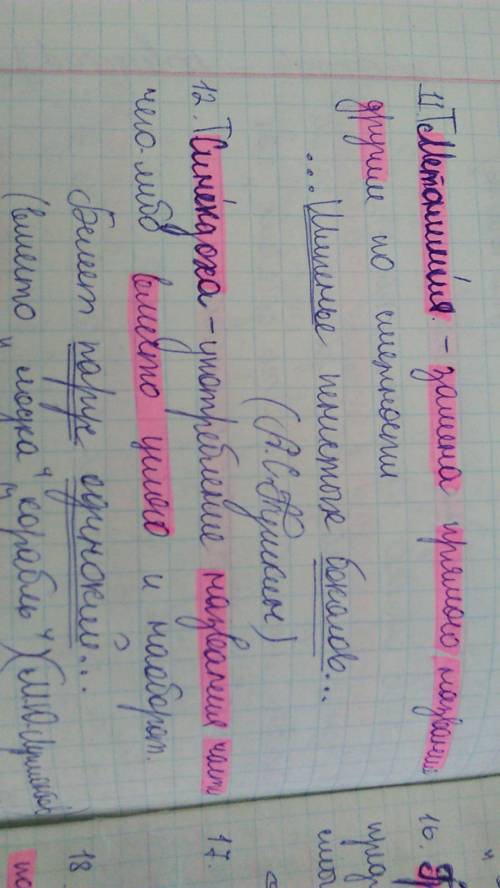 11. Т Метонимия. - замена прямого названия
другим по смежности
... Шипенье пенистых бокалов...
(А.С. Пушкин)
12. Т Синекдоха - употребление название части
чего-либо вместо целого и наоборот.
Белеет парус одинокий...
(вместо "лодка", "корабль") (М.Ю.
16.
пред
17.
18.